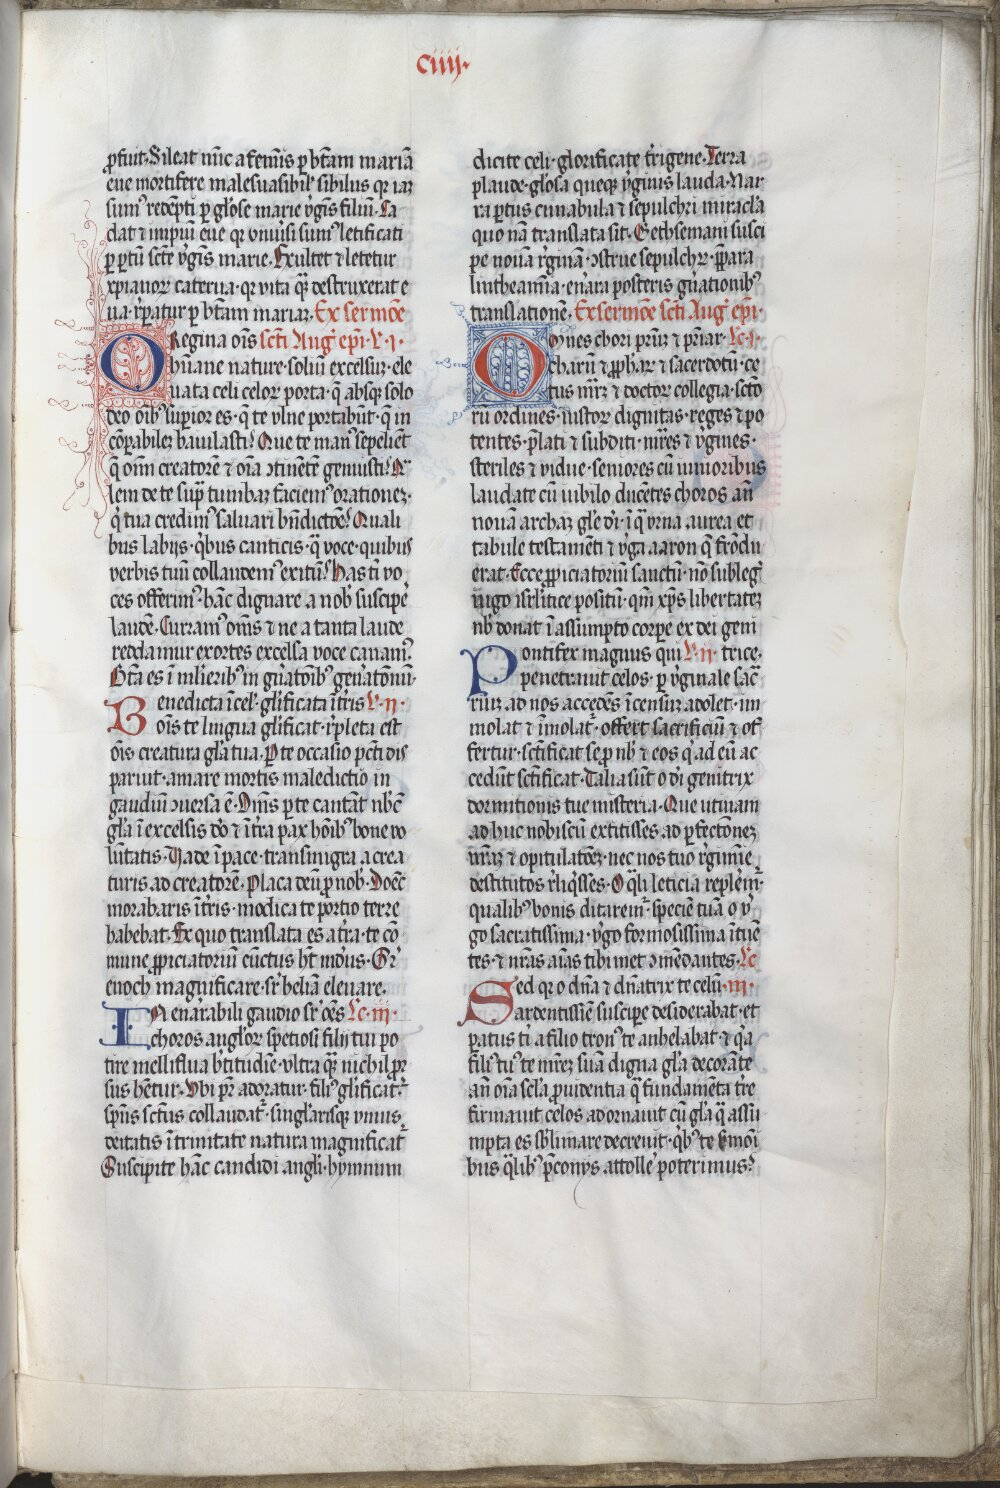 ciiij.
ꝓfuit. Sileat nūc a femīs ꝑ btam mariā
eue mortifere malesuasibil' sibilus qꝛ iaꝫ
sumꝰ redēpti ꝑ gl'ose marie v̓gīs filiū. La
dat ⁊ impiū eue qꝛ vniūsi sumꝰ letificati
ꝑ ꝑtū scē v̓gīs marie. Exultet ⁊ letetur
xpianoꝝ caterua. qꝛ vita q̄ꝫ destruxerat e
ua. rꝑatur ꝑ btam mariaꝫ. Ex sermōe
O Regina oīs scti Aug' epi. L. j.
hūane nature. soliū excelsuꝫ. ele
uata celi celoꝝ porta. q̄ absqꝫ solo
deo oībꝰ suꝑior es. q̄ te vlne portabūt. q̄ in
cōꝑabileꝫ baiulasti? Que te manꝰ sepeliēt
q̄ om̄ creatorē ⁊ oīa ↄtinētē genuisti?
lem de te suꝑ tumbaꝫ faciemꝰ orationeꝫ.
q̓ tua credimꝰ saluari bn̄dictōe? Quali
bus labijs. q̓bus canticis. q̄ voce. quibus
verbis tuū collaudemꝰ exitū? Has tī vo
ces offerimꝰ. hāc dignare a nob' suscipe
laudē. Curramꝰ om̄s ⁊ ne a tanta laude
reddamur exortes excelsa voce canamꝰ.
Bta es ī mlieribꝰ in gn̄atōibꝰ gen̄atōnū.
Benedicta ī cel'. gl'ificata ī tr̄is L. ij.
oīs te lingua gl'ificat. rꝑleta est
oīs creatura gl'a tua. ꝑ te occasio pcti dis
pariut. amare mortis maledictio in
gaudiū ↄuersa ē. Dm̄s ꝑ te cantāt nb̄c
gl'a ī excelsis dō ⁊ ī tr̄a pax hōibꝰ bone vo
lūtatis. Vade ī pace. transmigra a crea
turis ad creatorē. Placa deū ꝓ nob'. Doēc
morabaris ī tr̄is. modica te portio terre
habebat. Ex quo translata es a tr̄a. te cō
mune ꝓpiciatoriū cūctus ht mōus.
enoch magnificare. sr̄ heliā eleuare.
In enarabili gaudio sr̄ oēs Lc. iij.
choros angl'oꝝ spetiosi filij tui po
tire melliflua btitudīe. vltra q̄ꝫ nichil ꝓr
sus hētur. Vbi pr̄ adoratur. filiꝰ gl'ificat̄.
spūs sctūs collaudat̄. singl'arisqꝫ vnius
deitatis ī trinitate natura magnificat̄
Suscipite hāc candidi angl'i. hymnum
dicite celi. glorificate t̓rigene. Terra
plaude. gl'osa queqꝫ v̓ginis lauda. Nar
ra ꝑtus cunabula ⁊ sepulchri miracl'a
quo nā translata sit. Gethsemani susci
pe nouā r̓ginā. ↄstrue sepulchꝝ. p̄para
lintheamīa. enara posteris gn̄ationibꝰ
translationē. Ex sermōe scti Aug' epi.
Omnes chori priūꝫ ⁊ pr̄iar Lc. j.
charū ⁊ ꝓphaꝝ ⁊ sacerdotū. ce
tus mr̄ꝫ ⁊ doctoꝝ collegia. sctō
rū ordines. iustoꝝ dignitas. reges ⁊ po
tentes. p̄lati ⁊ subditi. mr̄es ⁊ v̓gines.
steriles ⁊ vidue. seniores cū iunioribus
laudate cū iubilo ducētes choros an̄
nouā archaꝫ gl'e dī. ī q̄ vrna aurea et
tabule testamēti ⁊ v̓ga aaron q̄ frōdu
erat. Ecce ꝓpiciatoriū sanctū. nō sub leg'
iugo isrl'itice positū. qm̄ xp̄s libertateꝫ
nb' donat ī assumpto corꝑe ex dei geni
Pontifex magnus qui L. ij. trice.
penetrauit celos. ꝑ v̓ginale sac̄
riūꝫ ad nos accedēs ī censuꝫ adolet. im
molat ⁊ īmolat̄. offert sacrificiū ⁊ of
fertur. sctificat se ꝓ nb' ⁊ eos q̓ ad eū ac
cedūt sctificat. Talia sūt o dī genitrix
dormitionis tue misteria. Que utinam
ad huc nobiscū extitisses. ad ꝑfectōneꝫ
nr̄aꝫ ⁊ opitulatōeꝫ. nec nos tuo r̓gimīe
destitutos r̓liq̓sses. O q̄li leticia replem̄.
qualibꝰ bonis ditarem̄. speciē tuā o v̓
go sacratissima. v̓go formosissima ītuē
tes. ⁊ nr̄as aīas tibimet ↄmēdantes. Lc
Sed qꝛ o dn̄a ⁊ dn̄atrix te celū. iij.
ardentissīe suscipe desiderabat. et
patus tī a filio tronꝰ te anhelabat. ⁊ q̓a
filiꝰ tuꝰ te mr̄eꝫ suā digna gl'a decorāte
an̄ oīa scl'a ꝓuidentia q̄ fundamēta tr̄e
firmauit celos adornauit cū gl'a q̄ assū
mpta es sb'limare decreuit. q̓bꝰ te s̄moī
bus q̄libꝰ p̄conijs attolle' poterimus?